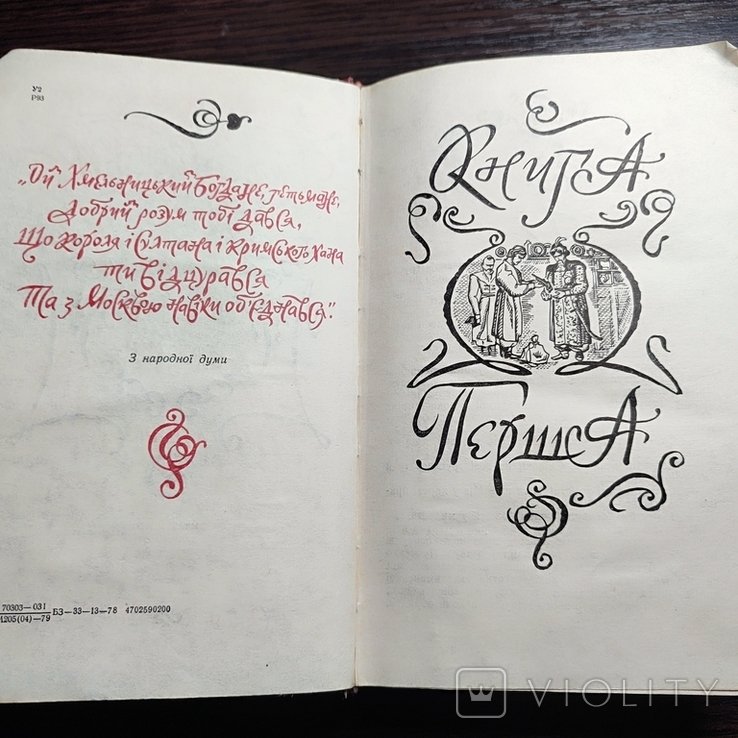 У2
Р93
„Ой Хмельницький Богдане, гетьмане,
Добрий розум тобі дався,
Що короля і султана і кримського хана
Ти відцурався
Та з Москвою навіки об'єднався".
З народної думи
70303—031
М205(04)—79
БЗ—33—13—78 4702590200
Книга
Перша
VIOLITY